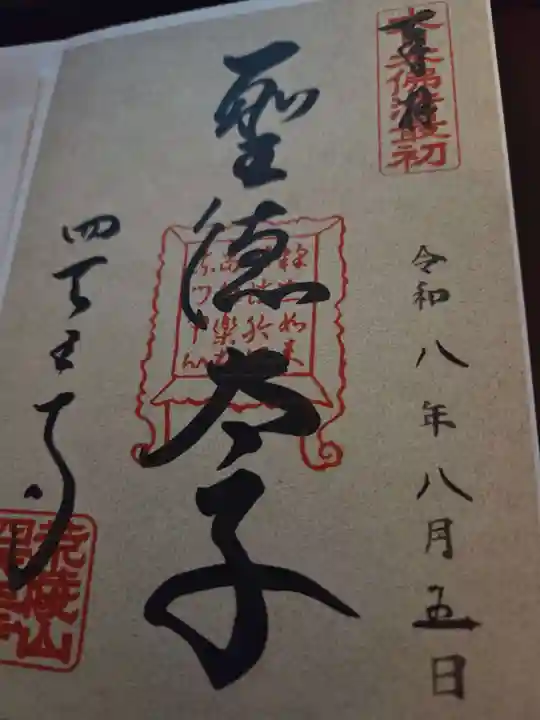 奉拝
大日本佛法最初
令和八年八月五日
聖徳太子
四天王寺
荒陵山